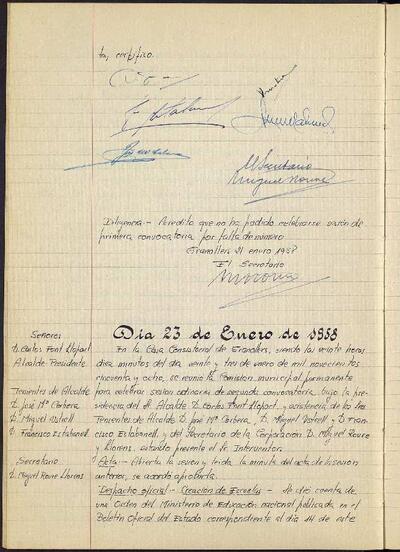 to, certifico.
El Secretario
Diligencia.- Acredito que no ha podido celebrarse sesión de
primera convocatoria por falta de número
Granollers 21 enero 1958
El Secretario
Señores
D. Carlos Font Llopart
Alcalde-Presidente
Tenientes de Alcalde
D. José Mª Corbera
D. Miguel Ustrell
D. Francisco Estabanell
Secretario
D. Miguel Roure Llorens
Dia 23 de Enero de 1958
En la Casa Consistorial de Granollers, siendo las veinte horas
diez minutos del dia veinte y tres de enero de mil novecientos
cincuenta y ocho, se reunió la Comisión municipal permanente
para celebrar sesión ordinaria de segunda convocatoria, bajo la pre-
sidencia del Sr. Alcalde D. Carlos Font Llopart, y asistencia de los tres
Tenientes de Alcalde D. José Mª Corbera, D. Miguel Ustrell y D. Fran-
cisco Estabanell, y del Secretario de la Corporación D. Miguel Roure
y Llorens, estando presente el Sr. Interventor.
Acta.- Abierta la sesion y leida la minuta del acta de la sesion
anterior, se acordo aprobarla.
Despacho oficial - Creación de Escuelas - Se dió cuenta de
una Orden del Ministerio de Educación nacional publicada en el
Boletin Oficial del Estado correspondiente al dia 14 de este